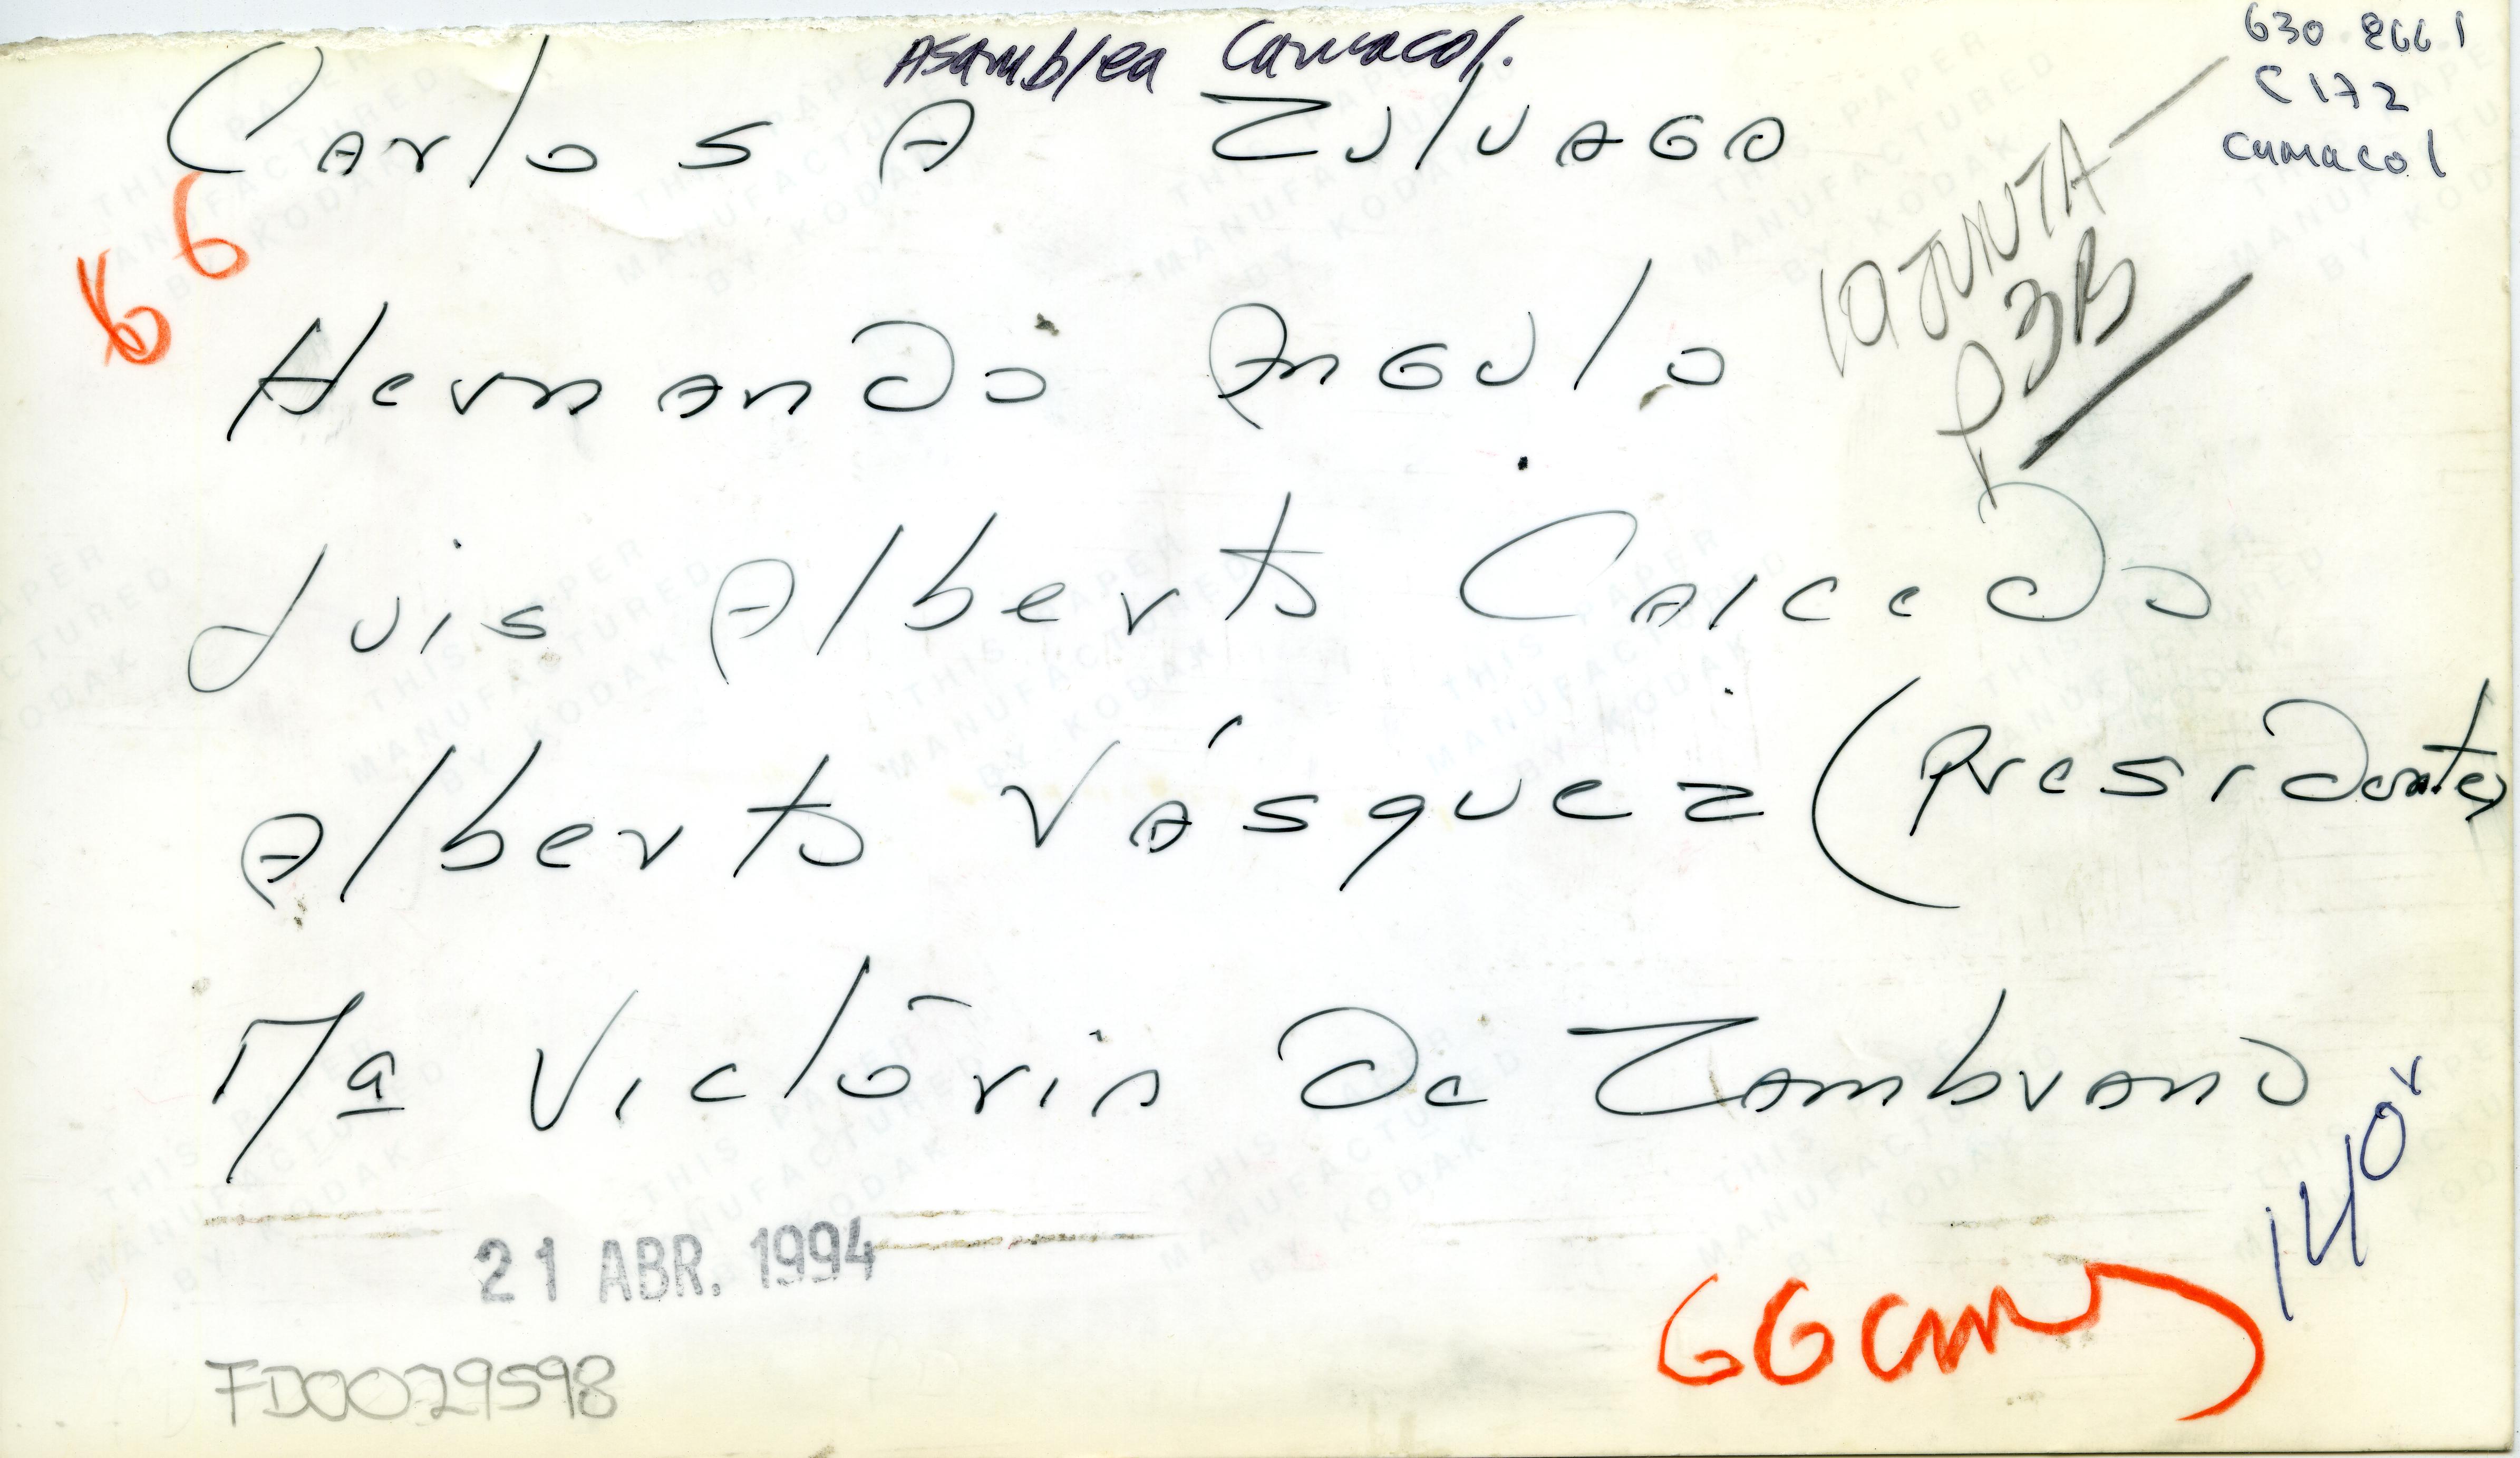 Asamblea Camacol.
630.2661
C172
Camacol
Carlos A Zuluaga
6 6
la JUNTA
P 3B
Hernando Angulo
Luis Alberto Caicedo
Alberto Vásquez (Presidente)
Mª Victória De Zambrano
21 ABR. 1994
FD0029598
66 cms
THIS PAPER
MANUFACTURED
BY KODAK